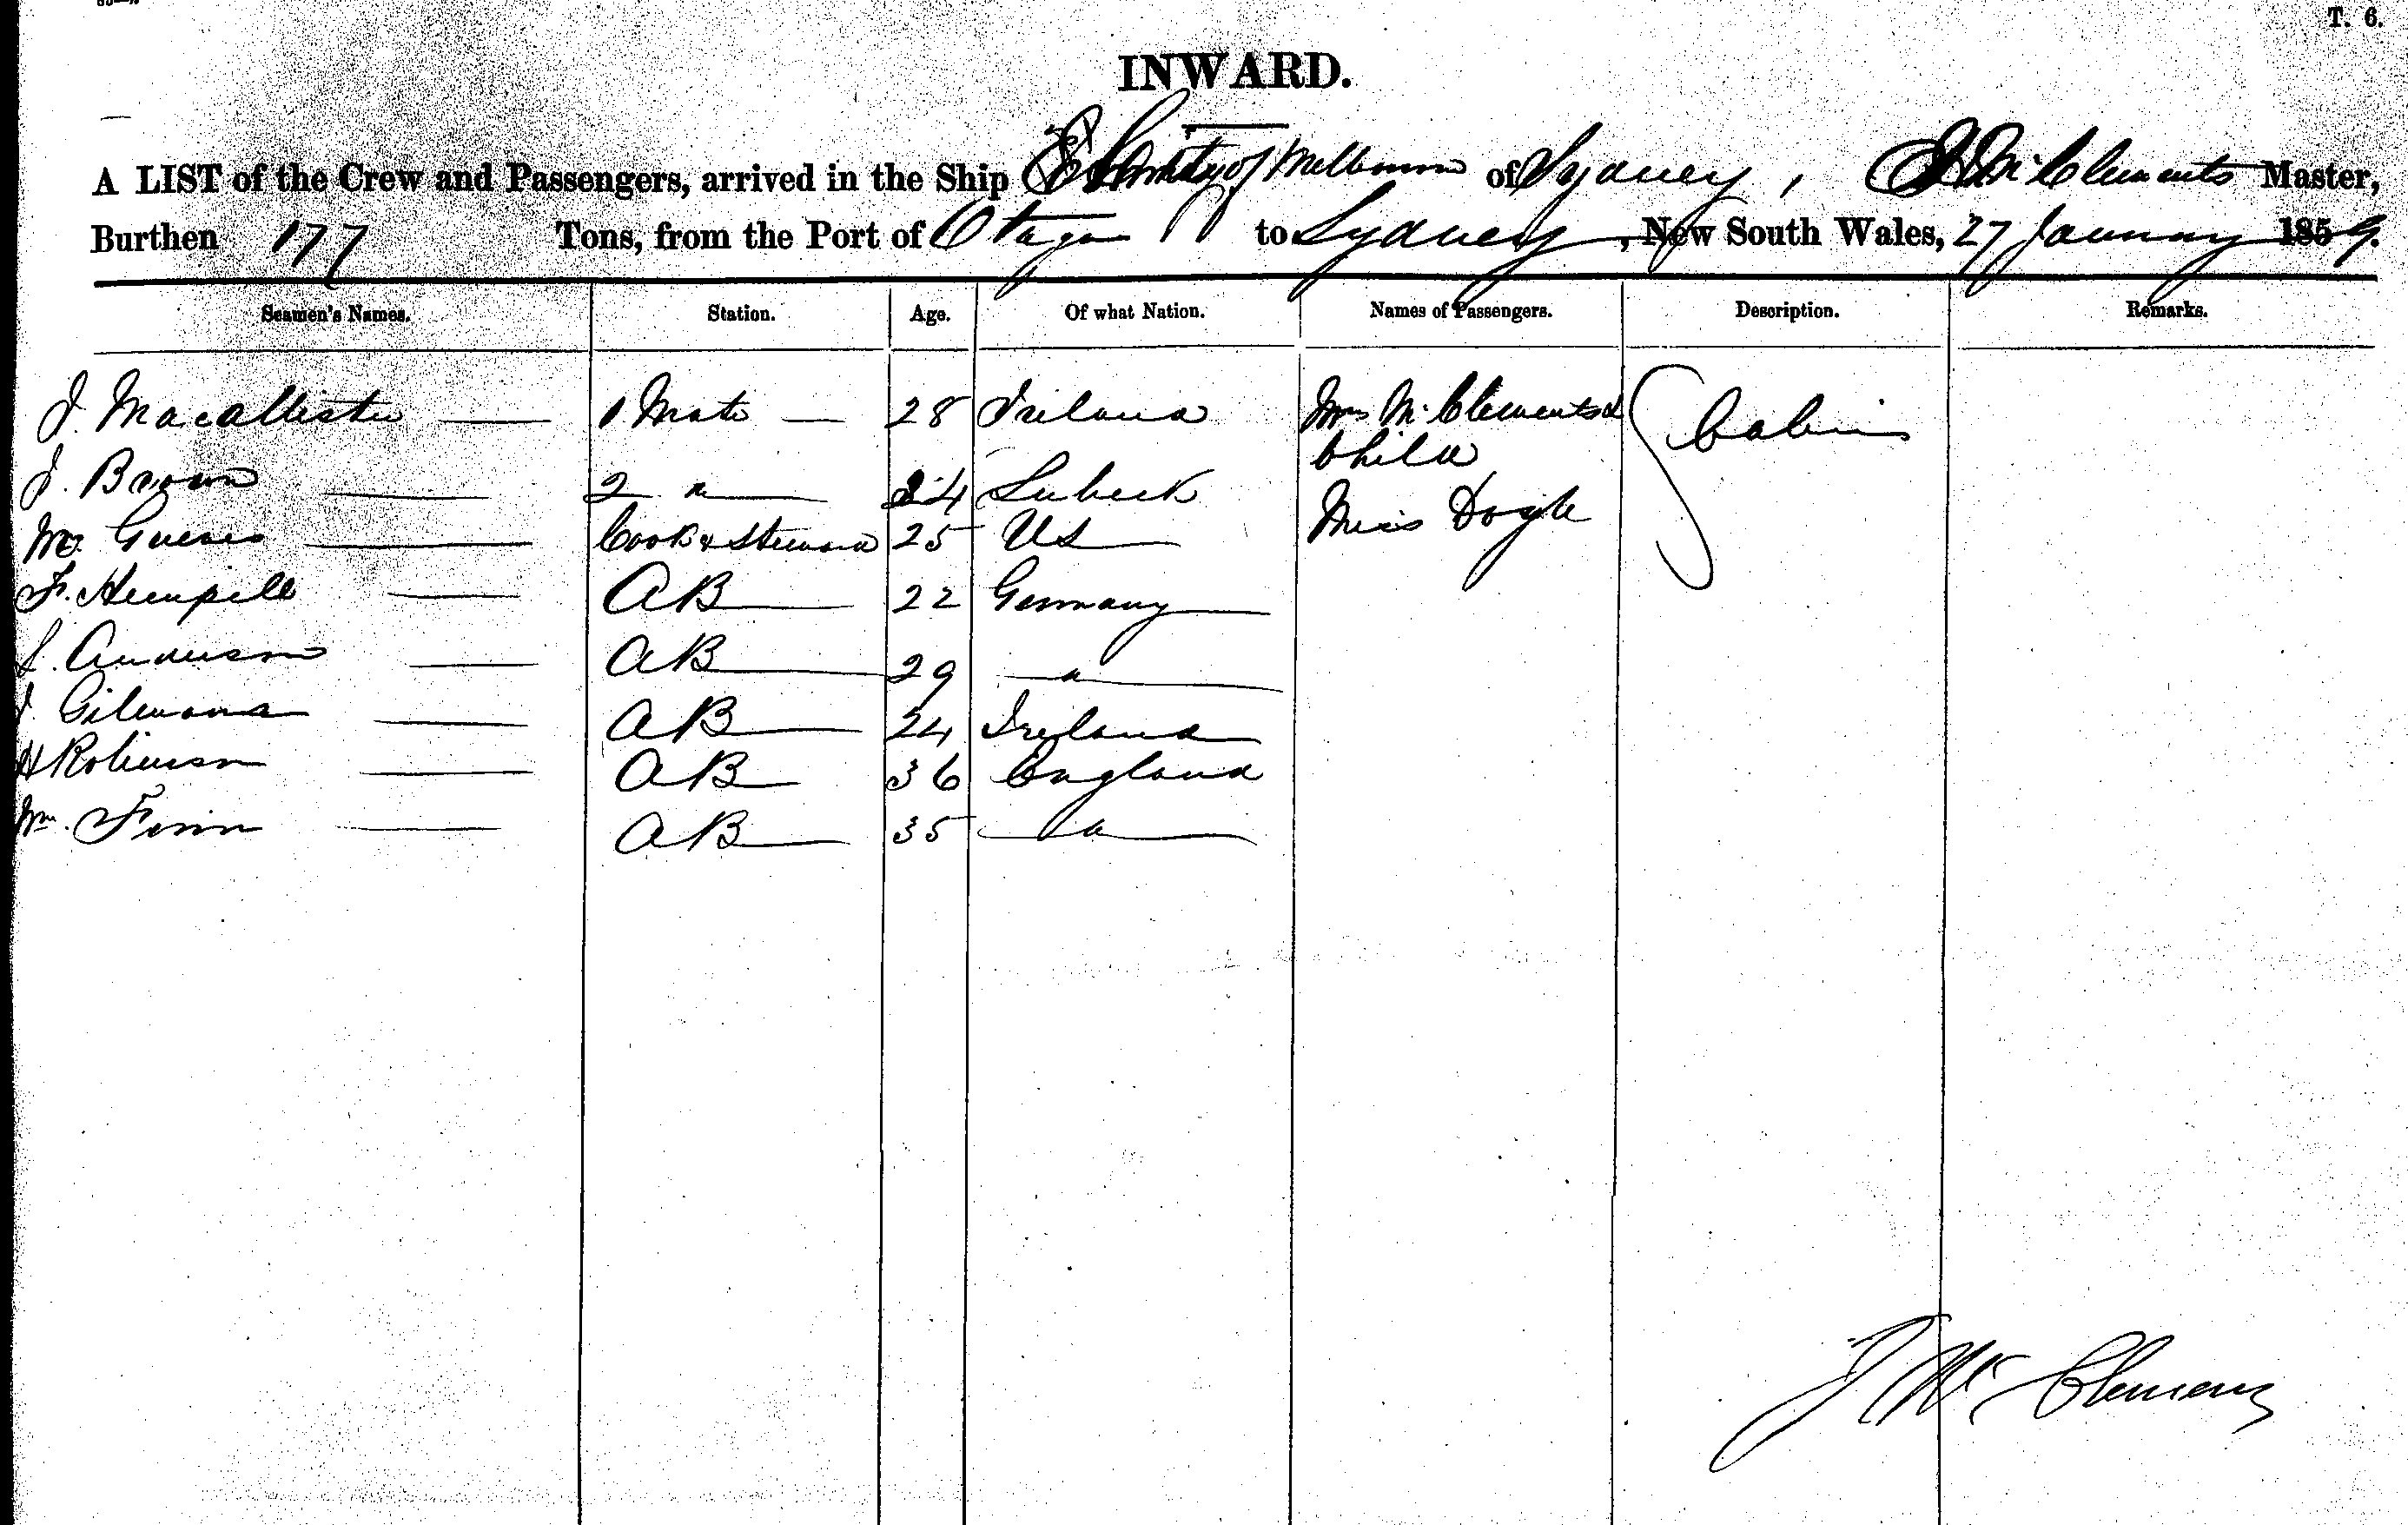 T. 6.
INWARD.
A LIST of the Crew and Passengers, arrived in the Ship City of Melbourne of Sydney, J Mc Clements Master,
Burthen 177 Tons, from the Port of Otago to Sydney, New South Wales, 27 January 1859.
Seamen's Names. Station. Age. Of what Nation. Names of Passengers. Description. Remarks.
J. Macallister 1 Mate 28 Ireland Mrs Mc Clements & Cabin
Child
J. Brown 2 " 24 Lubeck
Miss Doyle
Cook & Steward 25 US
F. Hempill AB 22 Germany
L. Anderson AB 29 "
J. AB 24 Ireland
H Robinson AB 36 England
Wm. Finn AB 35 "
J Mc